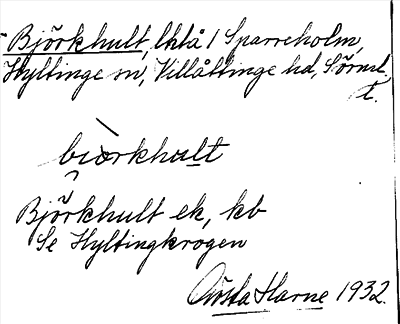 Björkhult, lhlå / Sparreholm,
Hyltinge sn, Villåttinge hd, Sörml.
t.
biörkhult
Björkhult ek, kb
Se Hyltingkrogen
Gösta Harne 1932.